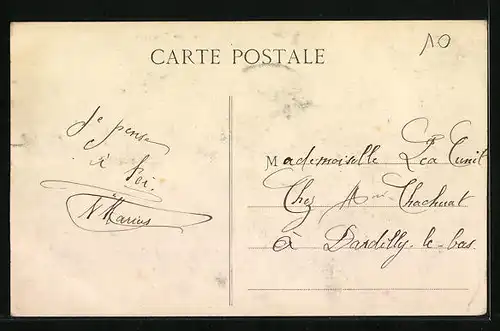 10
CARTE POSTALE
Je pense
à toi.
Marius
Mademoiselle Léa
Chez
à Dardilly-le-bas